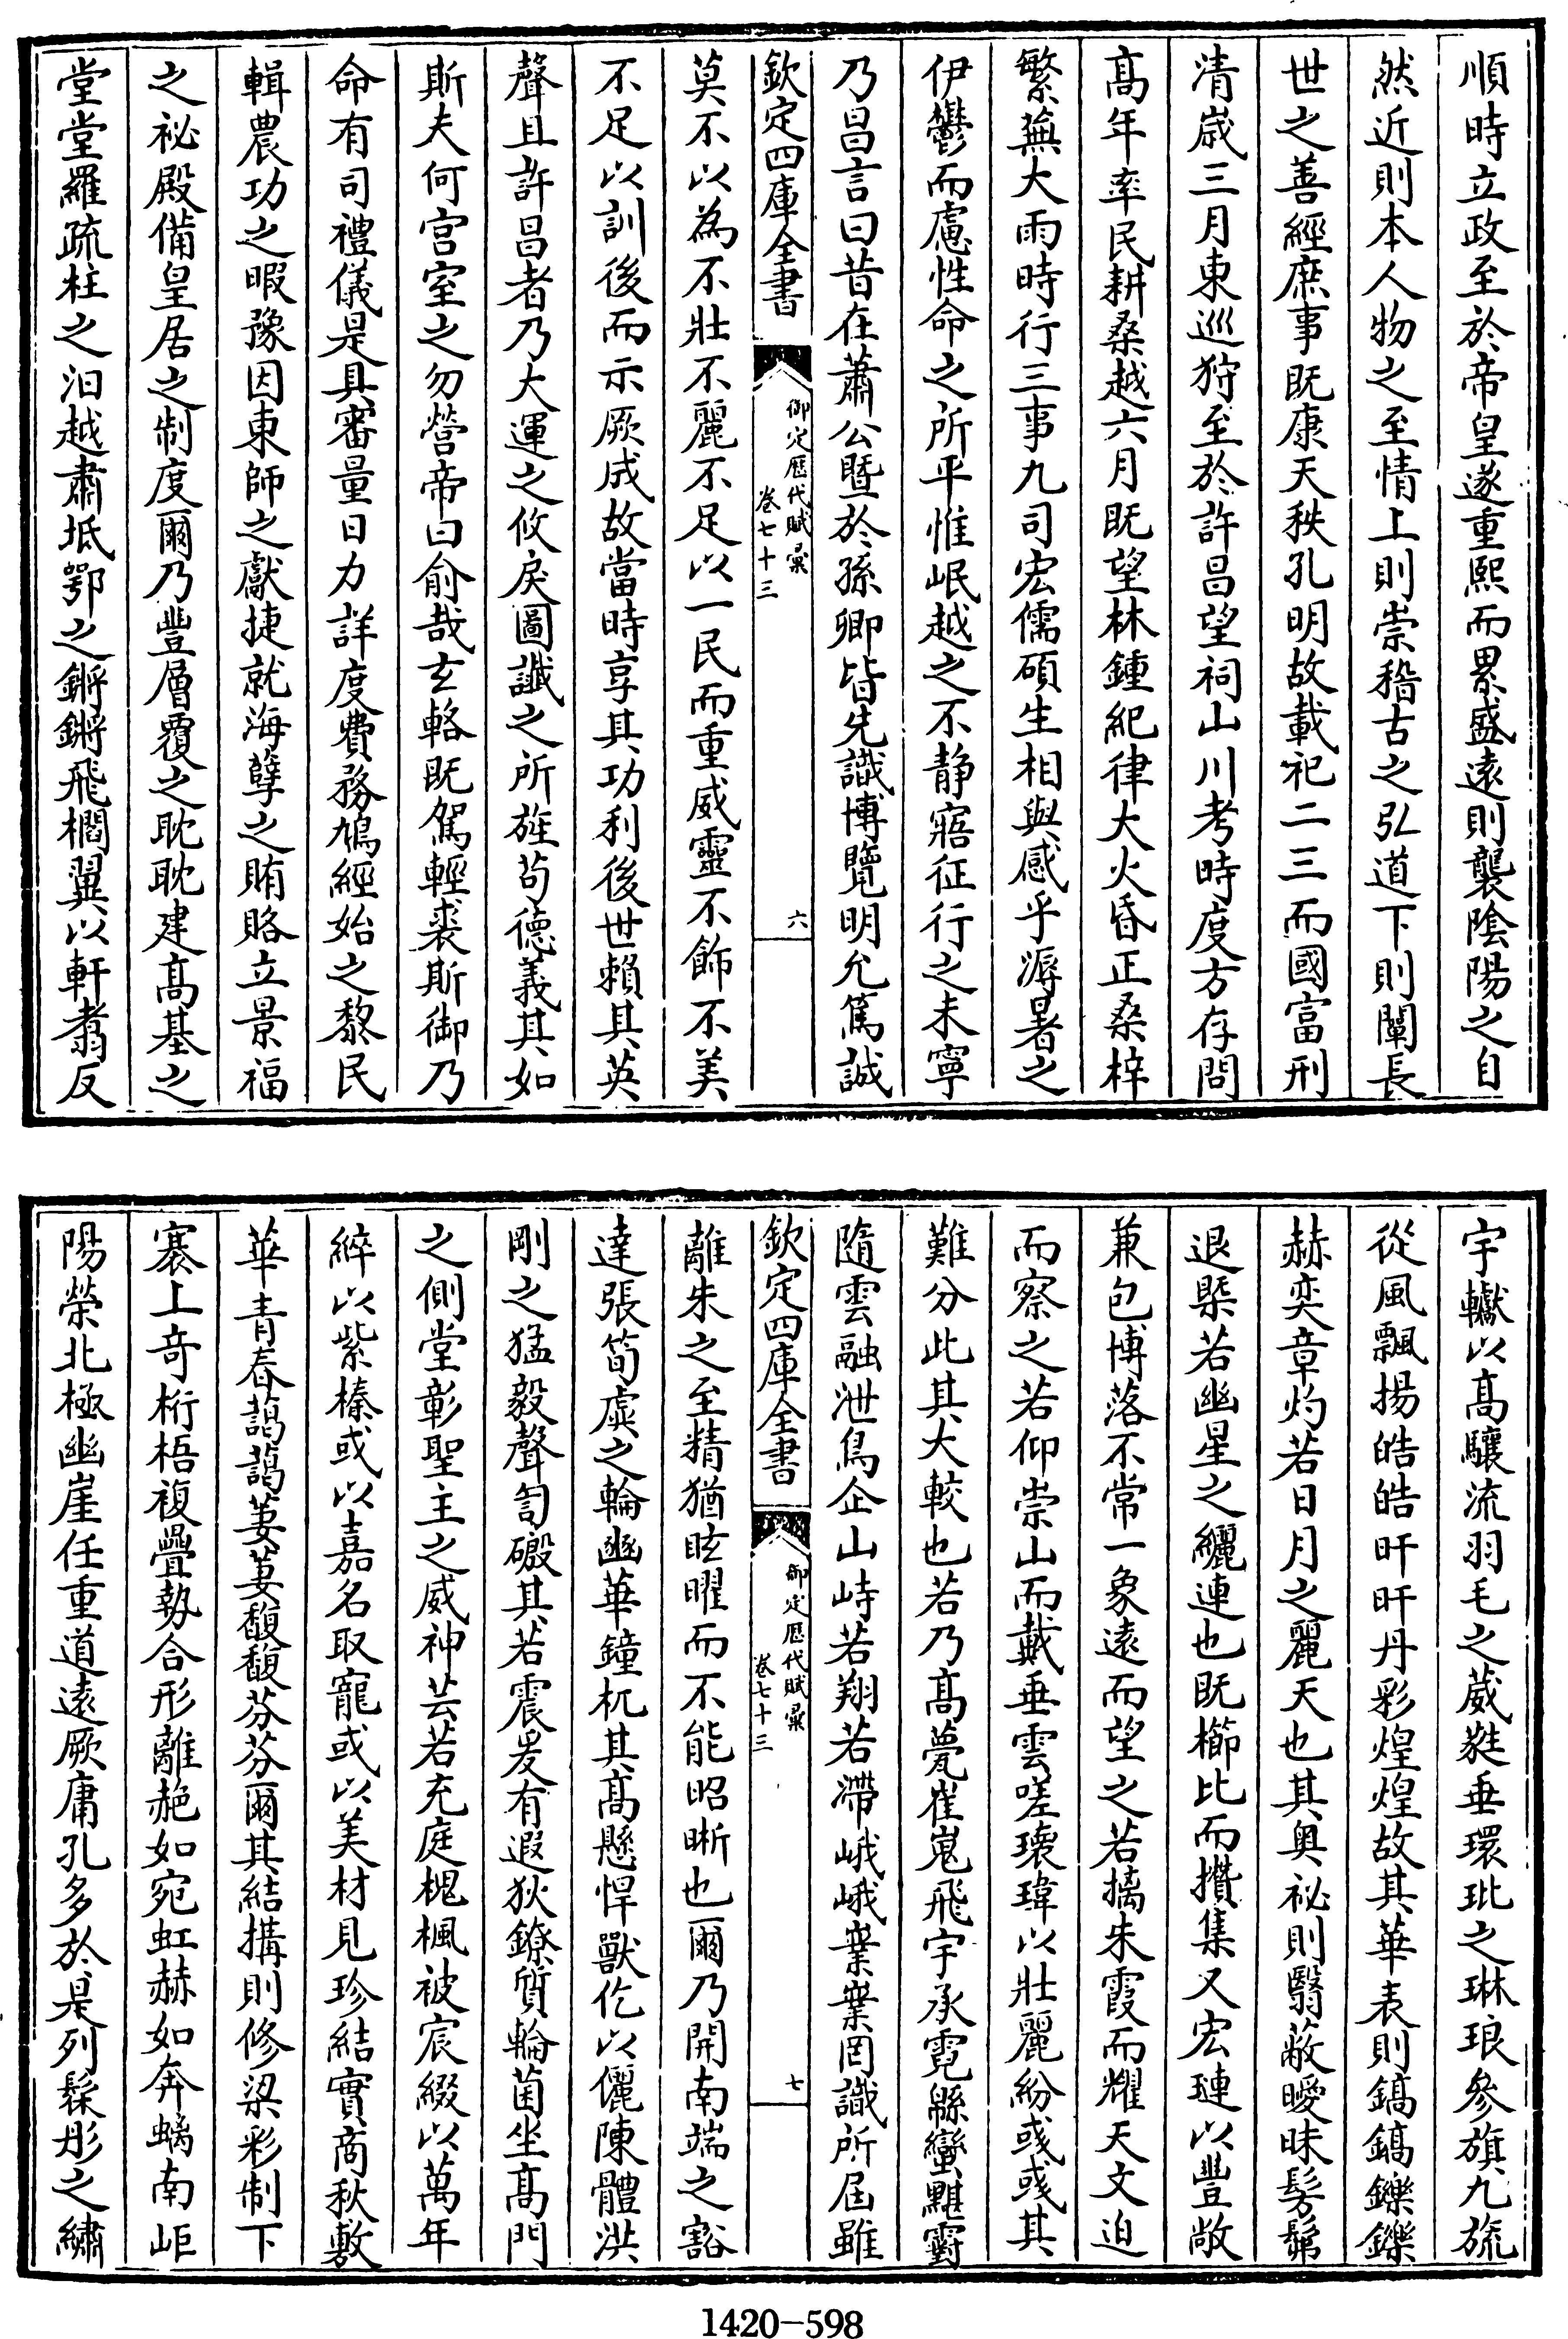 順時立政至於帝皇遂重熙而累盛遠則襲陰陽之自
然近則本人物之至情上則崇稽古之弘道下則闡長
世之善經庶事既康天秩孔明故載祀二三而國富刑
清歲三月東巡狩至於許昌望祠山川考時度方存問
高年率民耕桑越六月既望林鍾紀律大火昏正桑梓
繁蕪大雨時行三事九司宏儒碩生相與感乎溽暑之
伊鬱而慮性命之所平惟岷越之不靜寤征行之未寧
乃昌言曰昔在蕭公暨於孫卿皆先識博覽明允篤誠
欽定四庫全書
御定歷代賦彙
卷七十三
六
莫不以為不壯不麗不足以一民而重威靈不飾不美
不足以訓後而示厥成故當時享其功利後世賴其英
聲且許昌者乃大運之攸戾圖讖之所旌苟德義其如
斯夫何宮室之勿營帝曰俞哉玄輅既駕輕裘斯御乃
命有司禮儀是具審量日力詳度費務鳩經始之黎民
輯農功之暇豫因東師之獻捷就海孽之賄賂立景福
之祕殿備皇居之制度爾乃豐層覆之耽耽建高基之
堂堂羅疏柱之汩越肅坻鄂之鏘鏘飛櫩翼以軒翥反
宇轣以高驤流羽毛之葳蕤垂環玭之琳琅參旗九旒
從風飄揚皓皓旰旰丹彩煌煌故其華表則鎬鎬鑠鑠
赫奕章灼若日月之麗天也其奥祕則翳蔽曖昧髣髴
退槩若幽星之纚連也既櫛比而攢集又宏璉以豐敞
兼包博落不常一象遠而望之若摛朱霞而耀天文迫
而察之若仰崇山而戴垂雲嗟瓌瑋以壯麗紛彧彧其
難分此其大較也若乃高甍崔嵬飛宇承霓緜蠻黮䨴
隨雲融泄鳥企山峙若翔若滯峨峨嶪嶪罔識所屆雖
欽定四庫全書
御定歷代賦彙
卷七十三
七
離朱之至精猶眩曜而不能昭晰也爾乃開南端之豁
達張筍虡之輪豳華鐘杌其高懸悍獸仡以儷陳體洪
剛之猛毅聲訇磤其若震爰有遐狄鐐質輪菌坐高門
之側堂彰聖主之威神芸若充庭槐楓被宸綴以萬年
綷以紫榛或以嘉名取寵或以美材見珍結實商秋敷
華青春藹藹萋萋馥馥芬芬爾其結構則修梁彩制下
褰上奇桁梧複疊勢合形離赩如宛虹赫如奔螭南岠
陽榮北極幽崖任重道遠厥庸孔多於是列髹彤之繡
1420-598